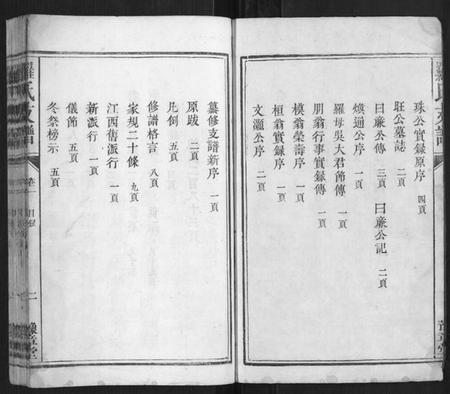 羅氏支譜
豫章堂
珠公實錄原序 四頁
珏公墓誌 二頁
曰廉公傳 三頁 曰廉公記 二頁
煥通公序 一頁
羅母吳大君節傳 一頁
朋翁行事實錄傳 一頁
模翁榮壽序 一頁
桓翁實錄序 一頁
文灝公序 二頁
纂修支譜新序 一頁
原跋 二頁
凡例 五頁
修譜格言 八頁
家規二十條 九頁
江西舊派行 一頁
新派行 一頁
儀節 五頁
冬祭榜示 五頁
羅氏支譜
卷
目錄
二
豫章堂